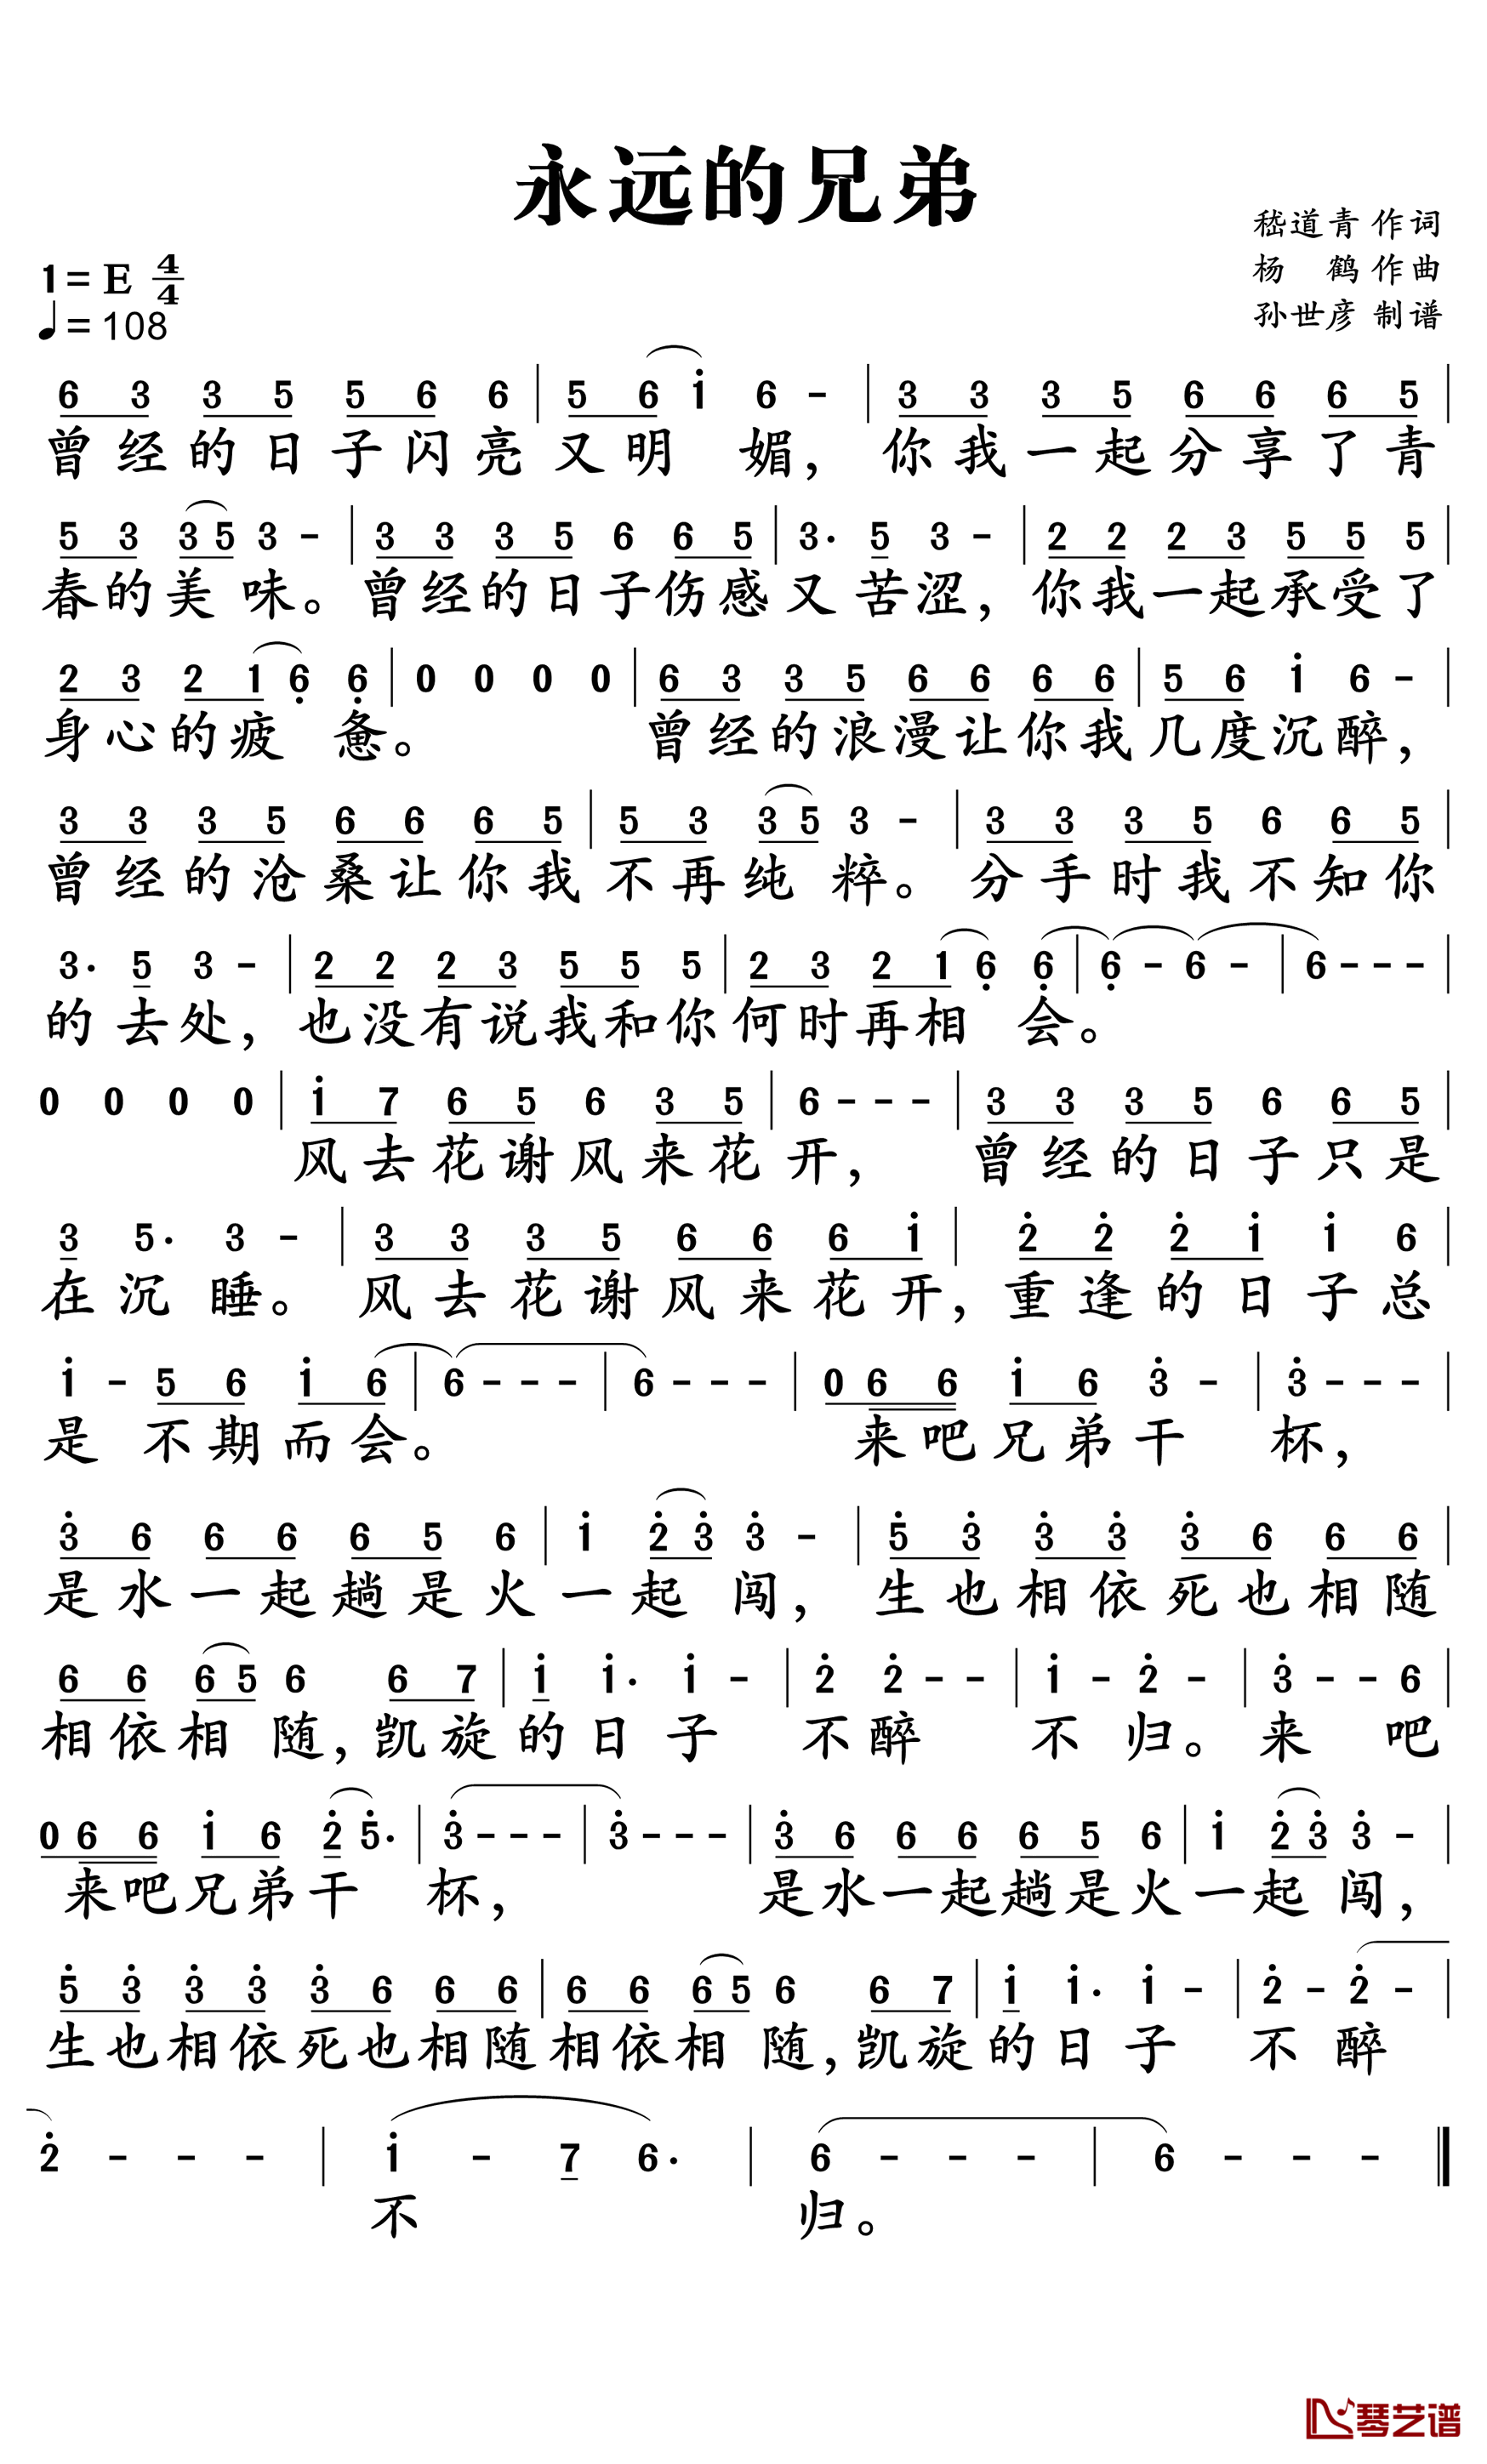 永远的兄弟
嵇道青 作词
1= E 4/4
杨 鹤 作曲
♩ = 108
孙世彦 制谱
6 3 3 5 5 6 6 | 5 6 i 6 - | 3 3 3 5 6 6 6 5 |
曾经的日子闪亮又明 媚，你我一起分享了青
5 3 3 5 3 - | 3 3 3 5 6 6 5 | 3· 5 3 - | 2 2 2 3 5 5 5 |
春的美 味。曾经的日子伤感又苦涩，你我一起承受了
2 3 2 1 6 6 | 0 0 0 0 | 6 3 3 5 6 6 6 6 | 5 6 i 6 - |
身心的疲 惫。 曾经的浪漫让你我几度沉醉，
3 3 3 5 6 6 6 5 | 5 3 3 5 3 - | 3 3 3 5 6 6 5 |
曾经的沧桑让你我不再纯 粹。分手时我不知你
3· 5 3 - | 2 2 2 3 5 5 5 | 2 3 2 1 6 6 | 6 - 6 - | 6 - - - |
的去处，也没有说我和你何时再相 会。
0 0 0 0 | i 7 6 5 6 3 5 | 6 - - - | 3 3 3 5 6 6 5 |
风去花谢风来花开， 曾经的日子只是
3 5· 3 - | 3 3 3 5 6 6 6 i | 2 2 2 i i 6 |
在沉 睡。风去花谢风来花开，重逢的日子总
i - 5 6 i 6 | 6 - - - | 6 - - - | 0 6 6 i 6 3 - | 3 - - - |
是 不期而会。 来吧兄弟干 杯，
3 6 6 6 6 5 6 | i 2 3 3 - | 5 3 3 3 3 6 6 6 |
是水一起趟是火一起 闯，生也相依死也相随
6 6 6 5 6 6 7 | i i· i - | 2 2 - - | i - 2 - | 3 - - 6 |
相依相 随，凯旋的日子 不醉 不归。来 吧
0 6 6 i 6 2 5· | 3 - - - | 3 - - - | 3 6 6 6 6 5 6 | i 2 3 3 - |
来吧兄弟干 杯， 是水一起趟是火一起 闯，
5 3 3 3 3 6 6 6 | 6 6 6 5 6 6 7 | i i· i - | 2 - 2 - |
生也相依死也相随相依相 随，凯旋的日子 不醉
2 - - - | i - 7 6· | 6 - - - | 6 - - - ‖
不 归。
琴艺谱